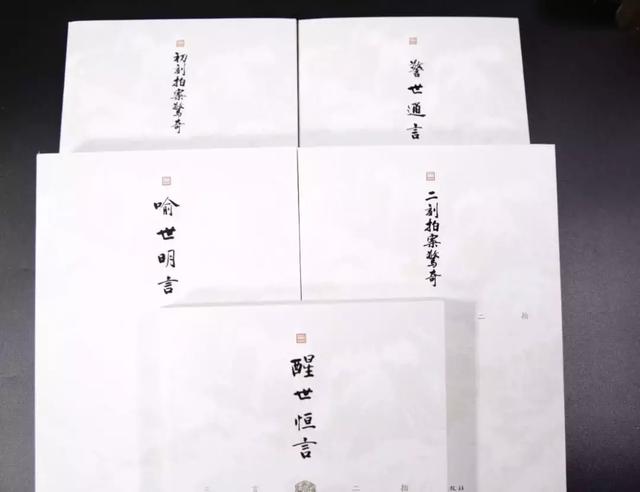 初刻拍案驚奇
警世通言
喻世明言
二刻拍案驚奇
二拍
醒世恒言
三言二拍